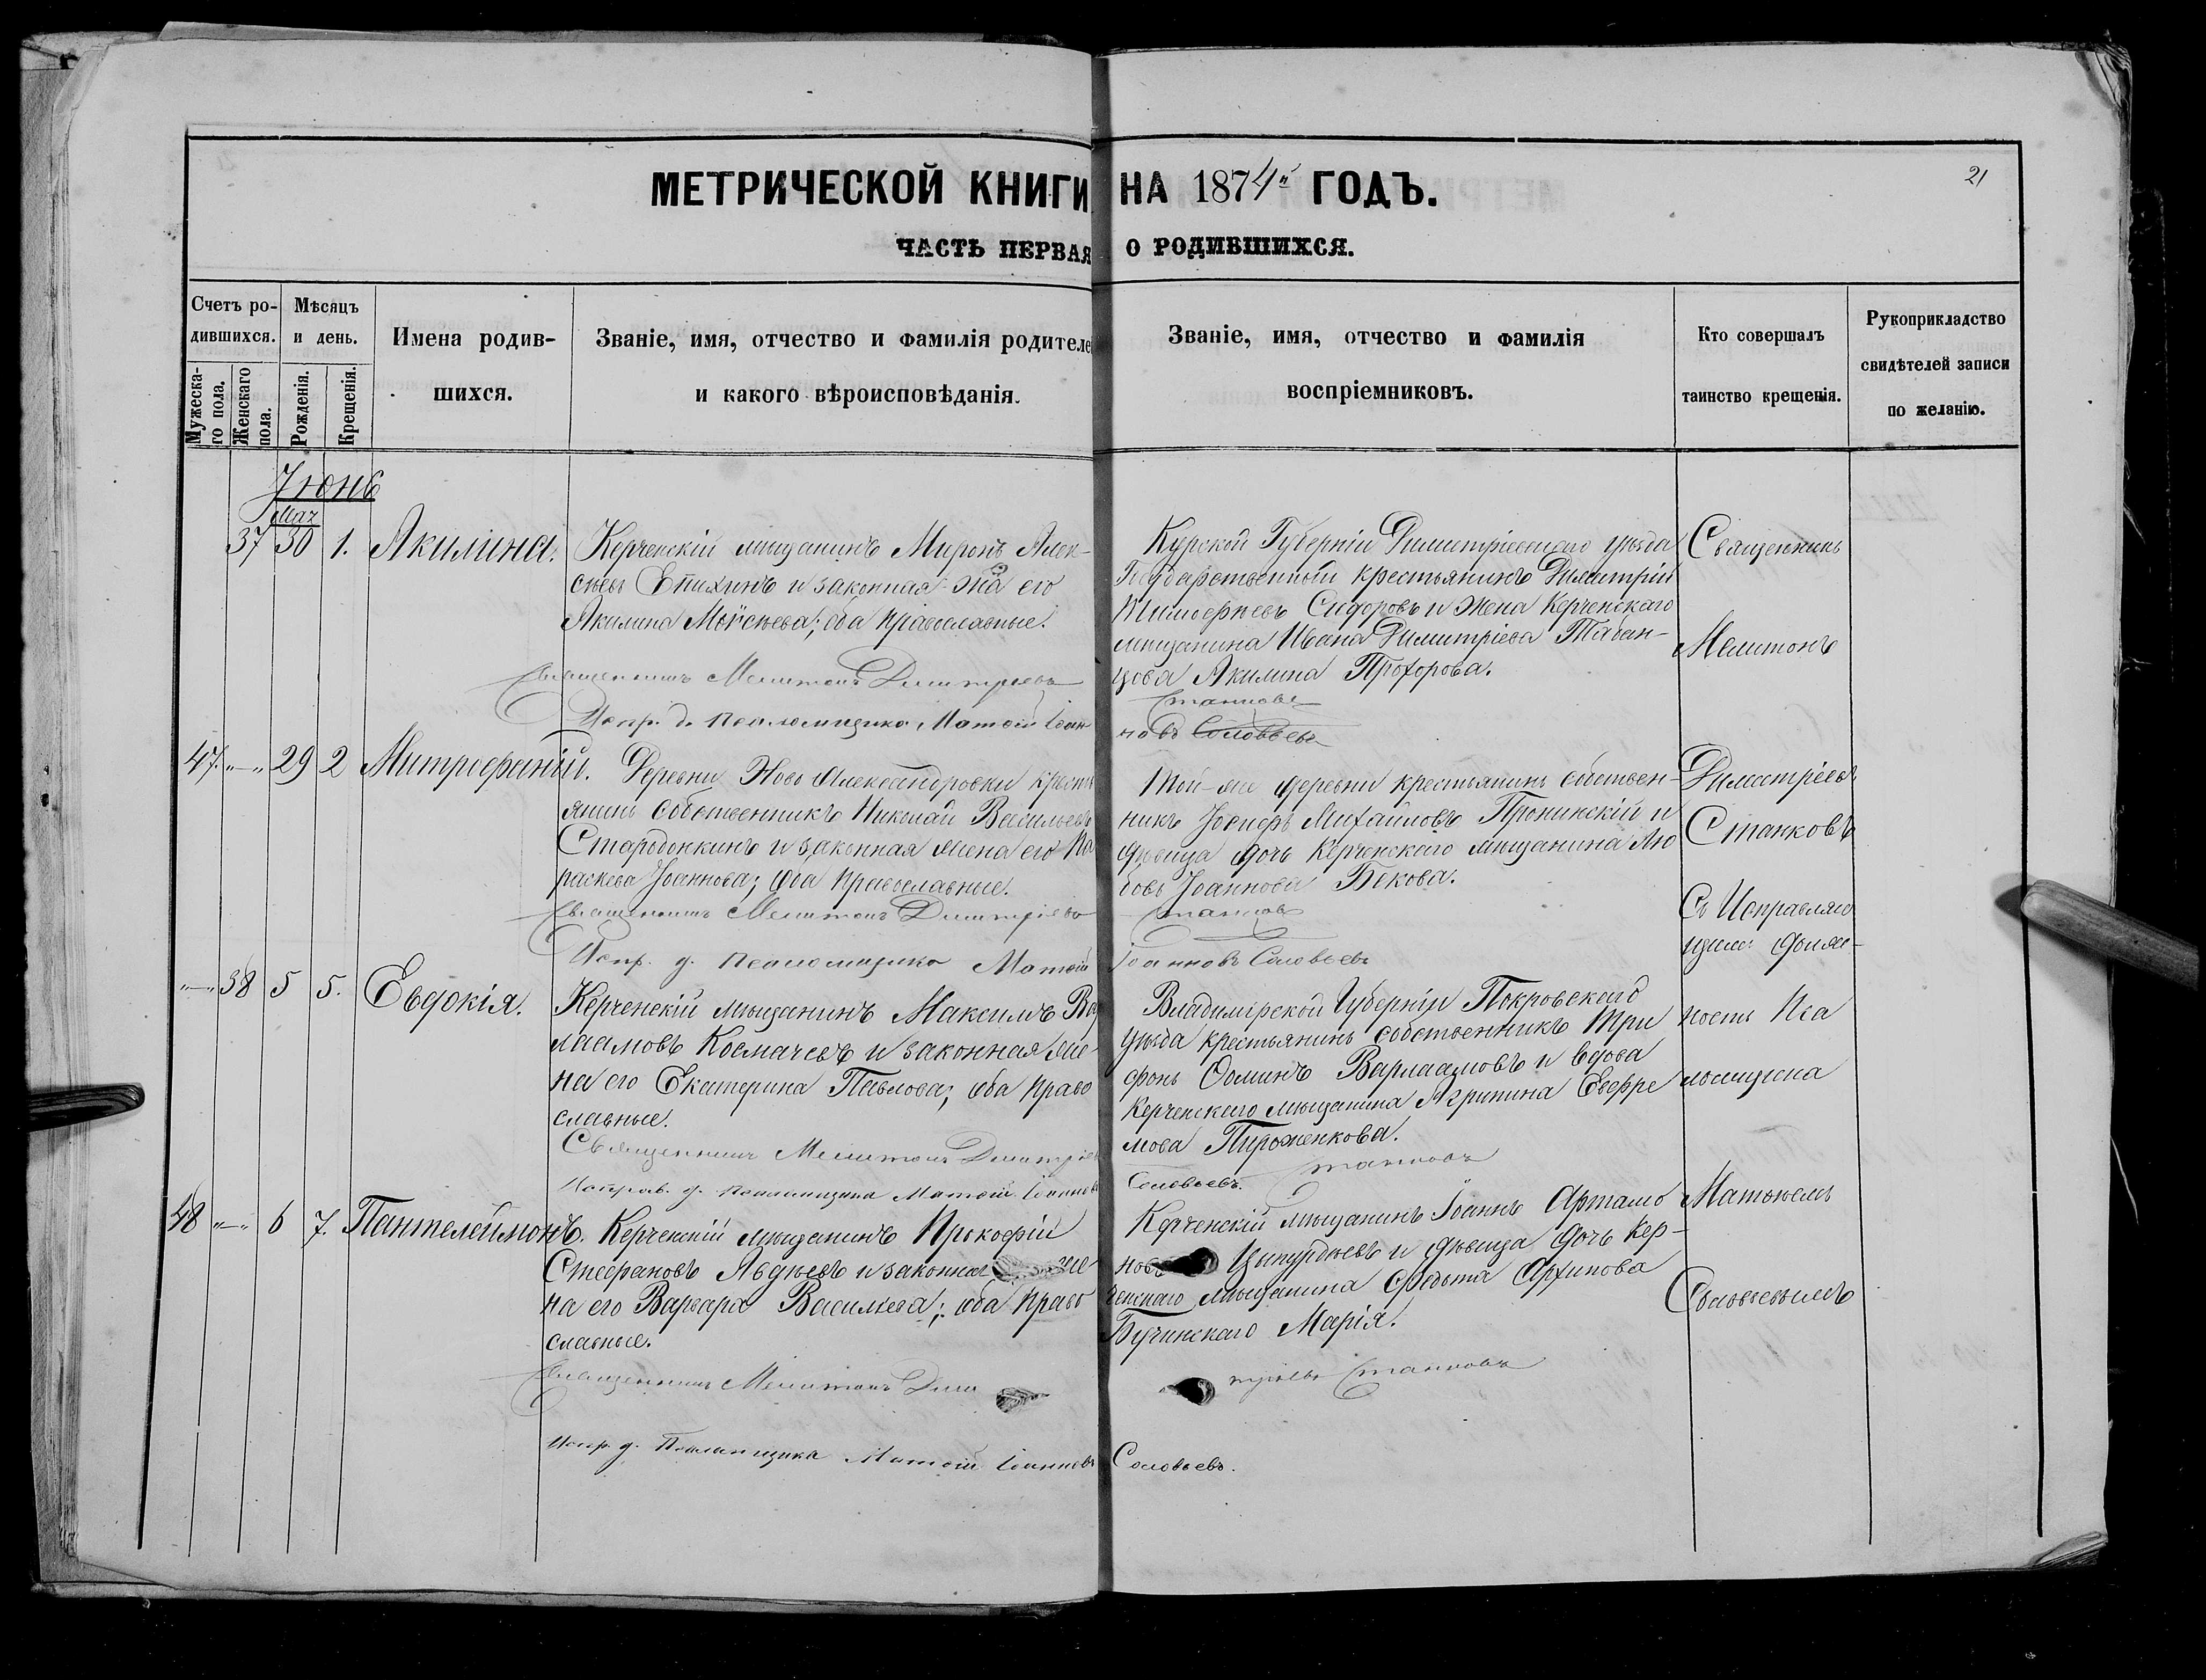 21
МЕТРИЧЕСКОЙ КНИГИ НА 1874й ГОДЪ.
ЧАСТЬ ПЕРВАЯ О РОДИВШИХСЯ.
Счетъ ро-
дившихся.
Мужеска-
го пола.
Женскаго
пола.
Мѣсяцъ
и день.
Рожденія.
Крещенія.
Имена родив-
шихся.
Званіе, имя, отчество и фамилія родителе
и какого вѣроисповѣданія.
Званіе, имя, отчество и фамилія
воспріемниковъ.
Кто совершалъ
таинство крещенія.
Рукоприкладство
свидѣтелей записи
по желанію.
Іюнь
Мая
37 30 1. Акилина.
Керченскій мѣщанинъ Миронъ Алек-
сѣевъ Епихинъ и законная жна его
Акилина Моѵсеѣва; оба православные.
Священникъ Мелитонъ Димитріевъ
Испр. д. псаломщика Матѳій Іоан
Курской Губерніи Димитріевскаго уѣзда
Государственный крестьянинъ Димитрій
Тимоѳеевъ Сидоровъ и жена Керченскаго
мѣщанина Ивана Димитріева Табан-
цова Акилина Прохорова.
Станковъ
новъ Соловьевъ
47. "—" 29 2 Митрофаній.
Деревни Ново Александровки крестъ
янинъ собственникъ Николай Васильевъ
Стародонкинъ и законная жена его Па
раскева Іоаннова; оба православные.
Священникъ Мелитонъ Димитріевъ
Испр. д. псаломщика Матѳій
Той-же деревни крестьянинъ собствен-
никъ Іосифъ Михайловъ Пронинскій и
дѣвица дочь Керченскаго мѣщанина Лю
бовь Іоаннова Бекова.
Станковъ
Іоанновъ Соловьевъ
"—" 38 5 5. Евдокія.
Керченскій мѣщанинъ Максимъ Вар
лаамовъ Космачевъ и законная же-
на его Екатерина Павлова; оба право
славные.
Священникъ Мелитонъ Димитріев
Исправ. д. псаломщика Матѳій Іоаннов
Владимірской Губерніи Покровскаго
уѣзда крестьянинъ собственникъ Три
фонъ Ѳоминъ Варлаамовъ и вдова
Керченскаго мѣщанина Агрипина Евфре
мова Пироженкова.
Станковъ
Соловьевъ.
48 "—" 6 7. Пантелеймонъ.
Керченскій мѣщанинъ Прокофій
Стефановъ Авдѣевъ и законная же-
на его Варвара Васильева; оба право
славные.
Священникъ Мелитонъ Дим
Испр. д. Псаломщика Матѳій Іоанновъ
Керченскій мѣщанинъ Іоаннъ Артамо
новъ Цыпурдѣевъ и дѣвица дочь Кер-
ченскаго мѣщанина Ѳедота Архипова
Бучинскаго Марія.
тріевъ Станковъ
Соловьевъ.
Священникъ
Мелитонъ
Димитріевъ
Станковъ
Съ Исправляю
щимъ долж-
ность Пса
ломщика
Матѳѣемъ
Соловьевымъ